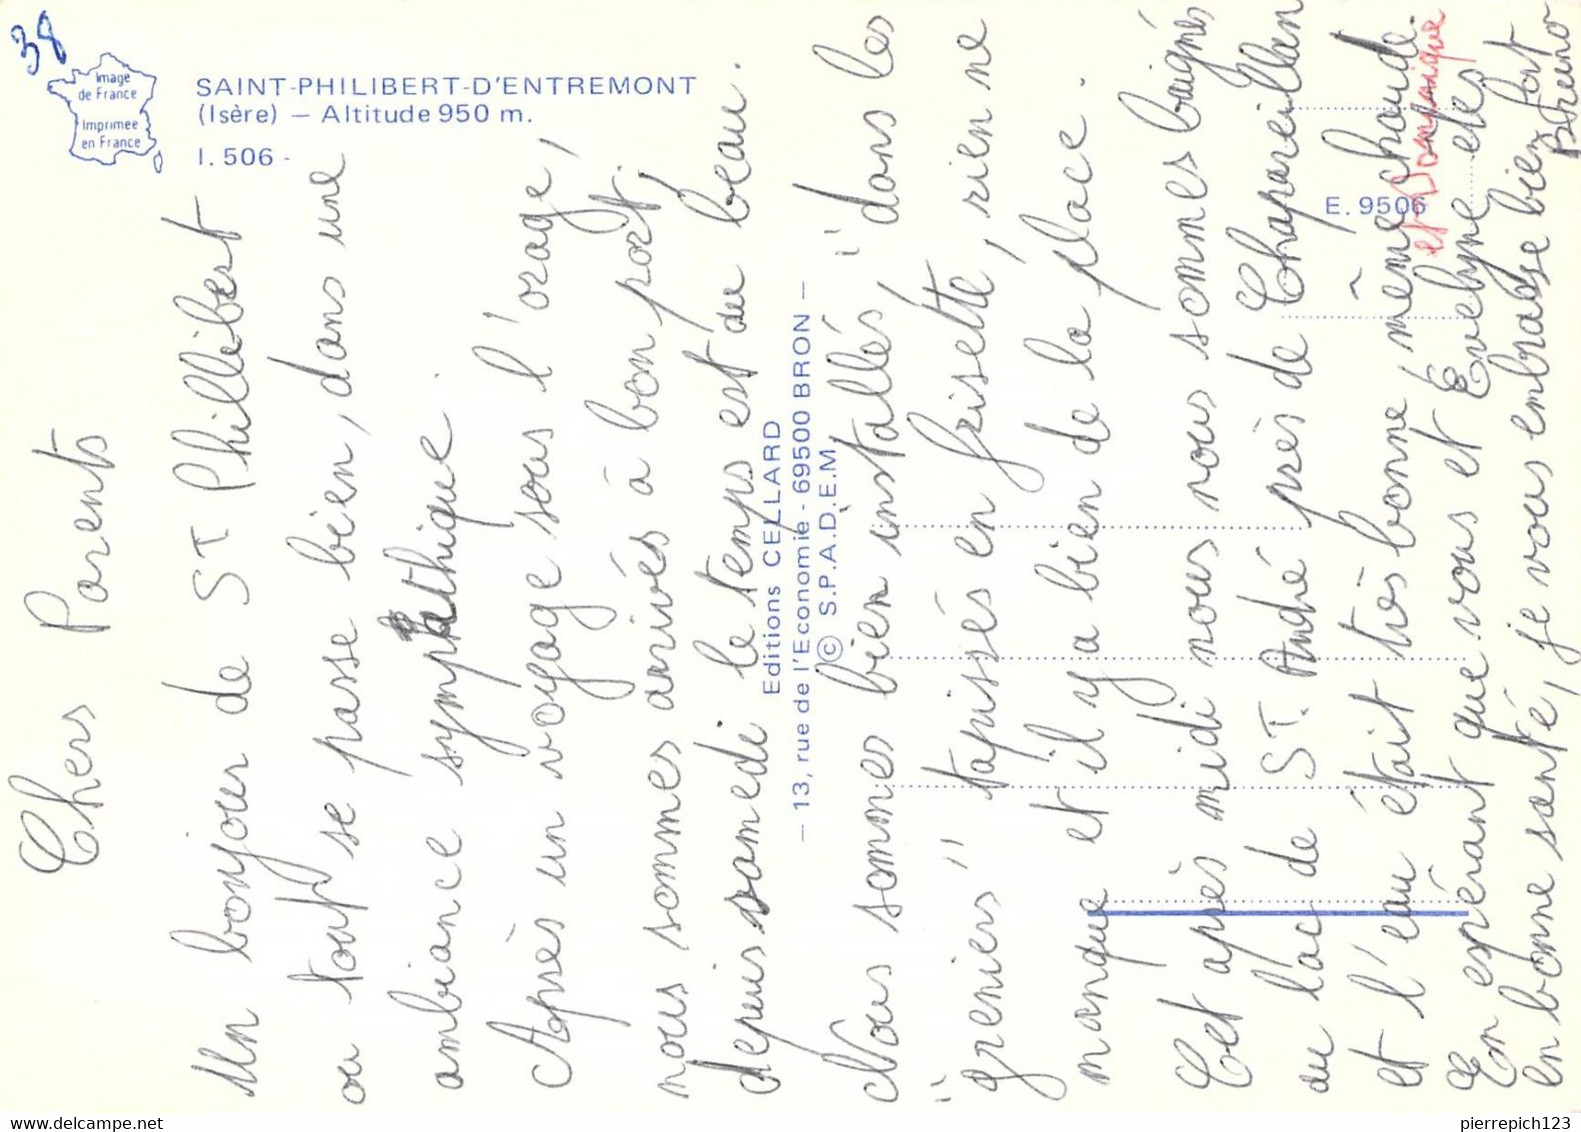 38
Image
de France
Imprimée
en France
SAINT-PHILIBERT-D'ENTREMONT
(Isère) — Altitude 950 m.
I. 506 -
E. 9506
Editions CELLARD
— 13, rue de l'Economie - 69500 BRON —
© S.P.A.D.E.M.
Chers Parents
Un bonjour de ST Phillibert
ou tout se passe bien, dans une
ambiance sympathique.
Après un voyage sous l'orage,
nous sommes arrivés à bon port,
depuis samedi le temps est au beau.
Nous sommes bien installés, "dans les
"greniers" tapissés en frisette, rien ne
manque et il y a bien de la place.
Cet après midi nous nous sommes baignés
au lac de ST. André près de Chapareillan
et l'eau était très bonne, même chaude.
En espérant que vous et Evelyne etes
et Dominique
en bonne santé, je vous embrasse bien fort
Bruno
pierrepich123